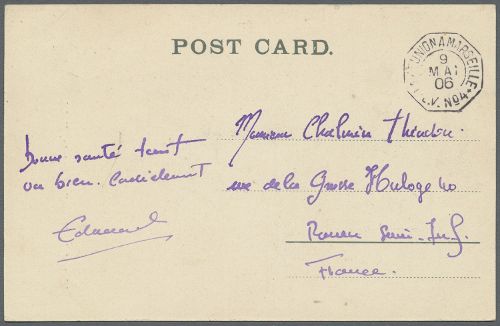 POST CARD.
RÉUNION A MARSEILLE
9
MAI
06
L.V. No4
Bonne santé tout
va bien. Cordialement
Edouard
Monsieur
rue de la Grosse Horloge 40
Rouen Seine-Inf.
France.